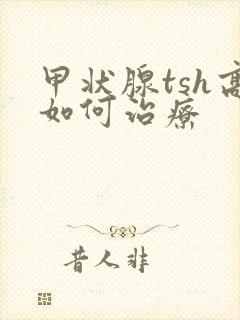 甲状腺tsh高
如何治疗
昔人非